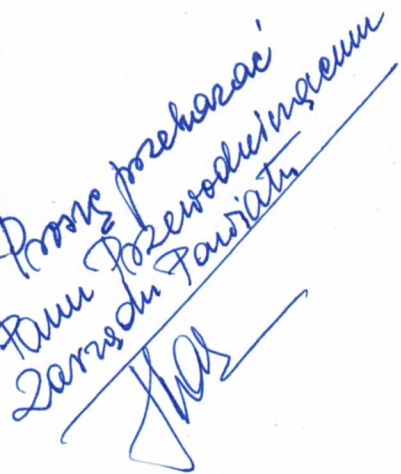 Proszę przekazać
Panu Przewodniczącemu
Zarządu Powiatu